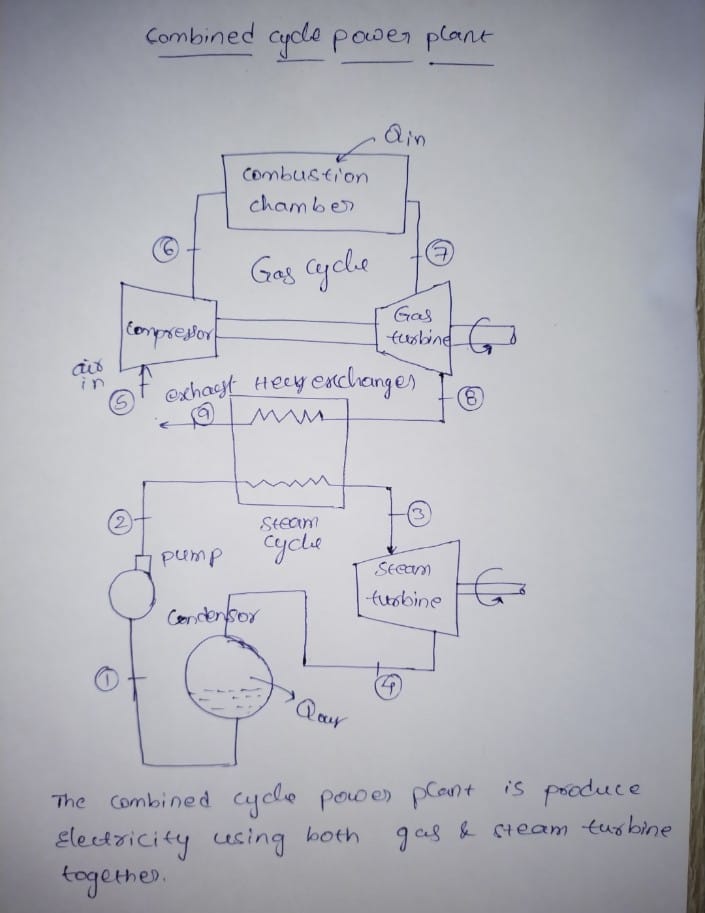 Combined cycle power plant
Qin
Combustion
chamber
6
Gas cycle
7
Compressor
Gas
turbine
air
in
5
exhaust Heat exchanger
9
8
2
Steam
cycle
3
pump
Steam
turbine
Condensor
1
4
Qout
The combined cycle power plant is produce
Electricity using both gas & steam turbine
together.